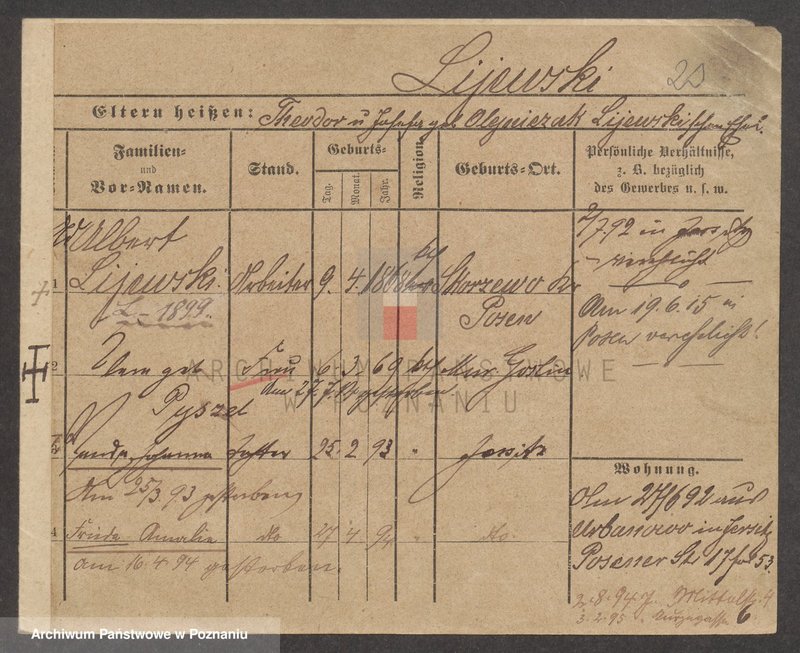 Lijewski
Eltern heißen: Theodor u Josepha geb Olejniczak Lijewski'schen Ehel.
Familien- und Vor-Namen.
Stand.
Geburts-
Tag. Monat. Jahr.
Religion
Geburts-Ort.
Persönliche Verhältnisse, z. B. bezüglich des Gewerbes u. s. w.
Albert
1 Lijewski Arbeiter 9. 4. 1868 kath Skorzewo Kr
Posen
L - 1899.
2/7.92 in Jersitz
verehelicht
Am 19.6.15 in
Posen verehelicht!
2 geb Frau 6. 3. 69 kth Mur. Goslin
Am 27.7. gestorben
Pyszel
3 Johanna Tochter 25. 2. 93 " Jersitz
Am 25/3.93 gestorben
4 Frieda Amalie do 27 4 94 " do.
am 16.4.94 gestorben.
Wohnung.
Am 27/6 92 aus
Urbanowo in Jersitz
Posener Str 17
2.8.94 J. Mittelstr. 4
3.2.95 6
ARCHIWUM PAŃSTWOWE
W POZNANIU
Archiwum Państwowe w Poznaniu